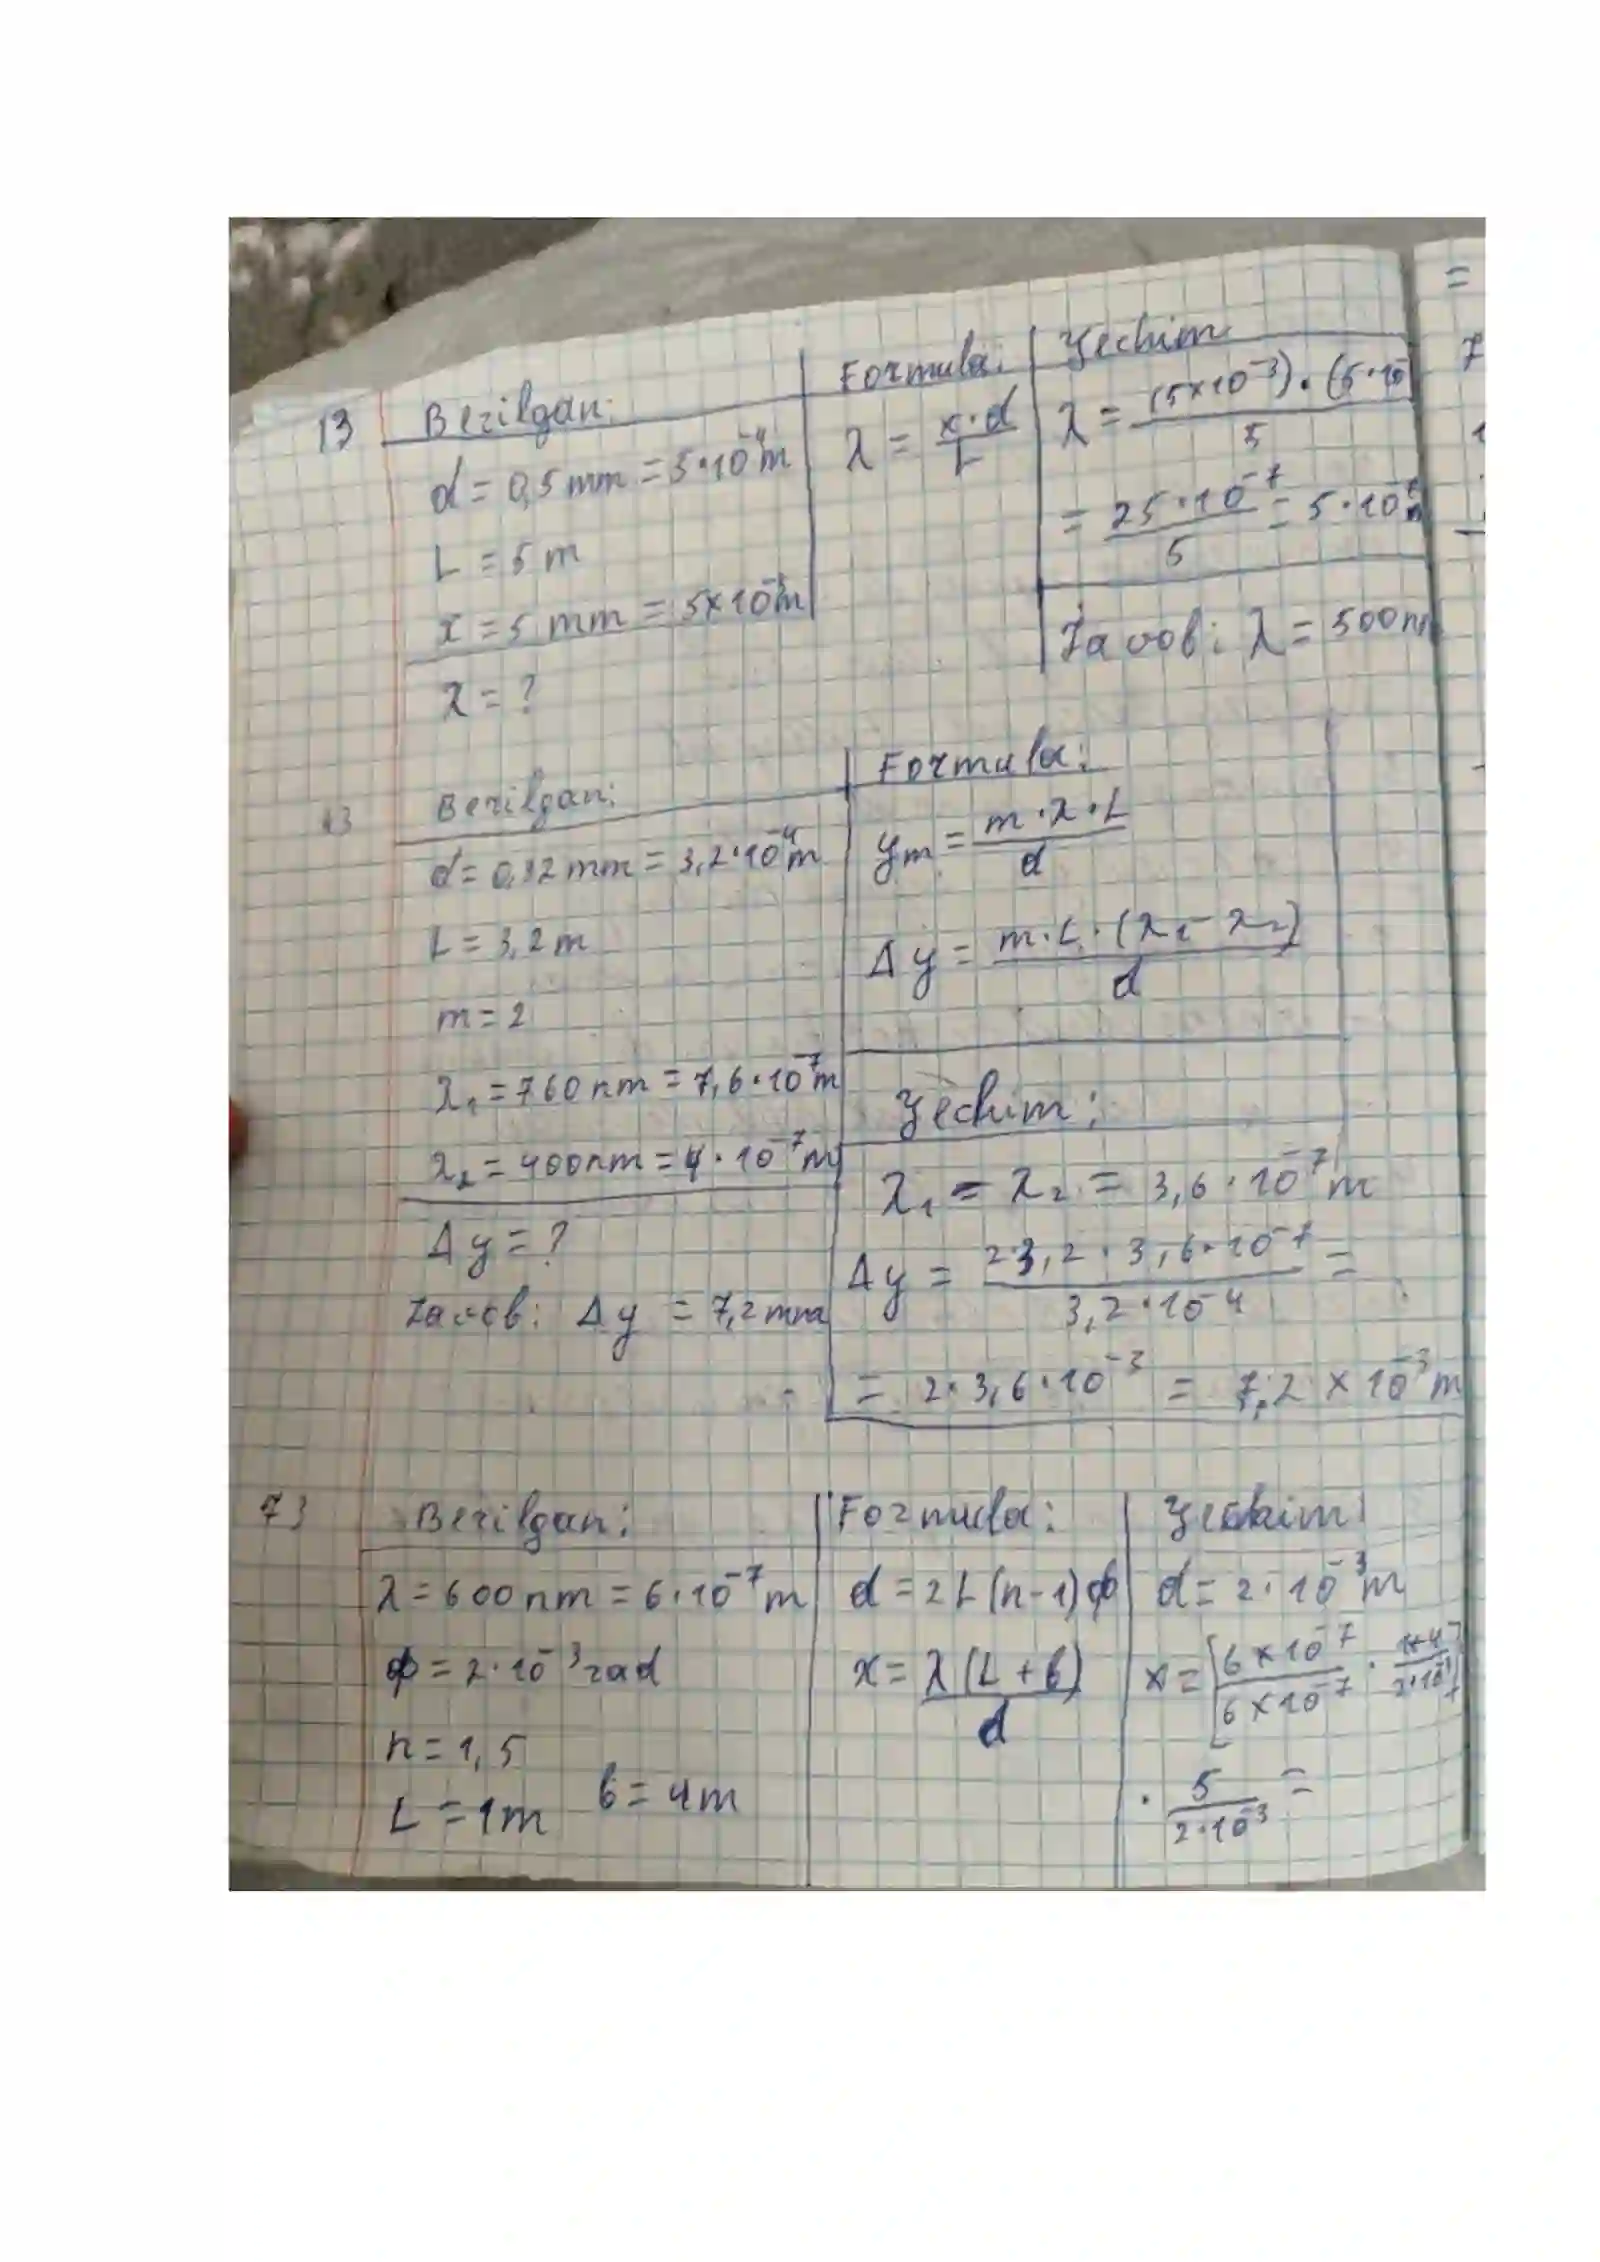 13 Berilgan:
d = 0,5 mm = 5·10⁻⁴m
L = 5 m
x = 5 mm = 5×10⁻³m
λ = ?
Formula:
λ = x·d / L
Yechim
λ = (5×10⁻³)·(5·10 / 5
= 25·10⁻⁷ / 5 = 5·10⁻⁷
Javob: λ = 500 n
Berilgan:
d = 0,32 mm = 3,2·10⁻⁴m
L = 3,2 m
m = 2
λ₁ = 760 nm = 7,6·10⁻⁷m
λ₂ = 400 nm = 4·10⁻⁷m
Δy = ?
Javob: Δy = 7,2 mm
Formula:
yₘ = m·λ·L / d
Δy = m·L·(λ₁ - λ₂) / d
Yechim:
λ₁ - λ₂ = 3,6·10⁻⁷m
Δy = 2·3,2·3,6·10⁻⁷ / 3,2·10⁻⁴ =
= 2·3,6·10⁻³ = 7,2 × 10⁻³m
73 Berilgan:
λ = 600 nm = 6·10⁻⁷m
ф = 2·10⁻³ rad
n = 1,5
L = 1 m b = 4 m
Formula:
d = 2L(n-1)ф
x = λ(L+b) / d
Yechim
d = 2·10⁻³m
x = [6×10⁻⁷ / 6×10⁻⁷ · 1+4 / 2·10⁻³
· 5 / 2·10⁻³ =
=
7